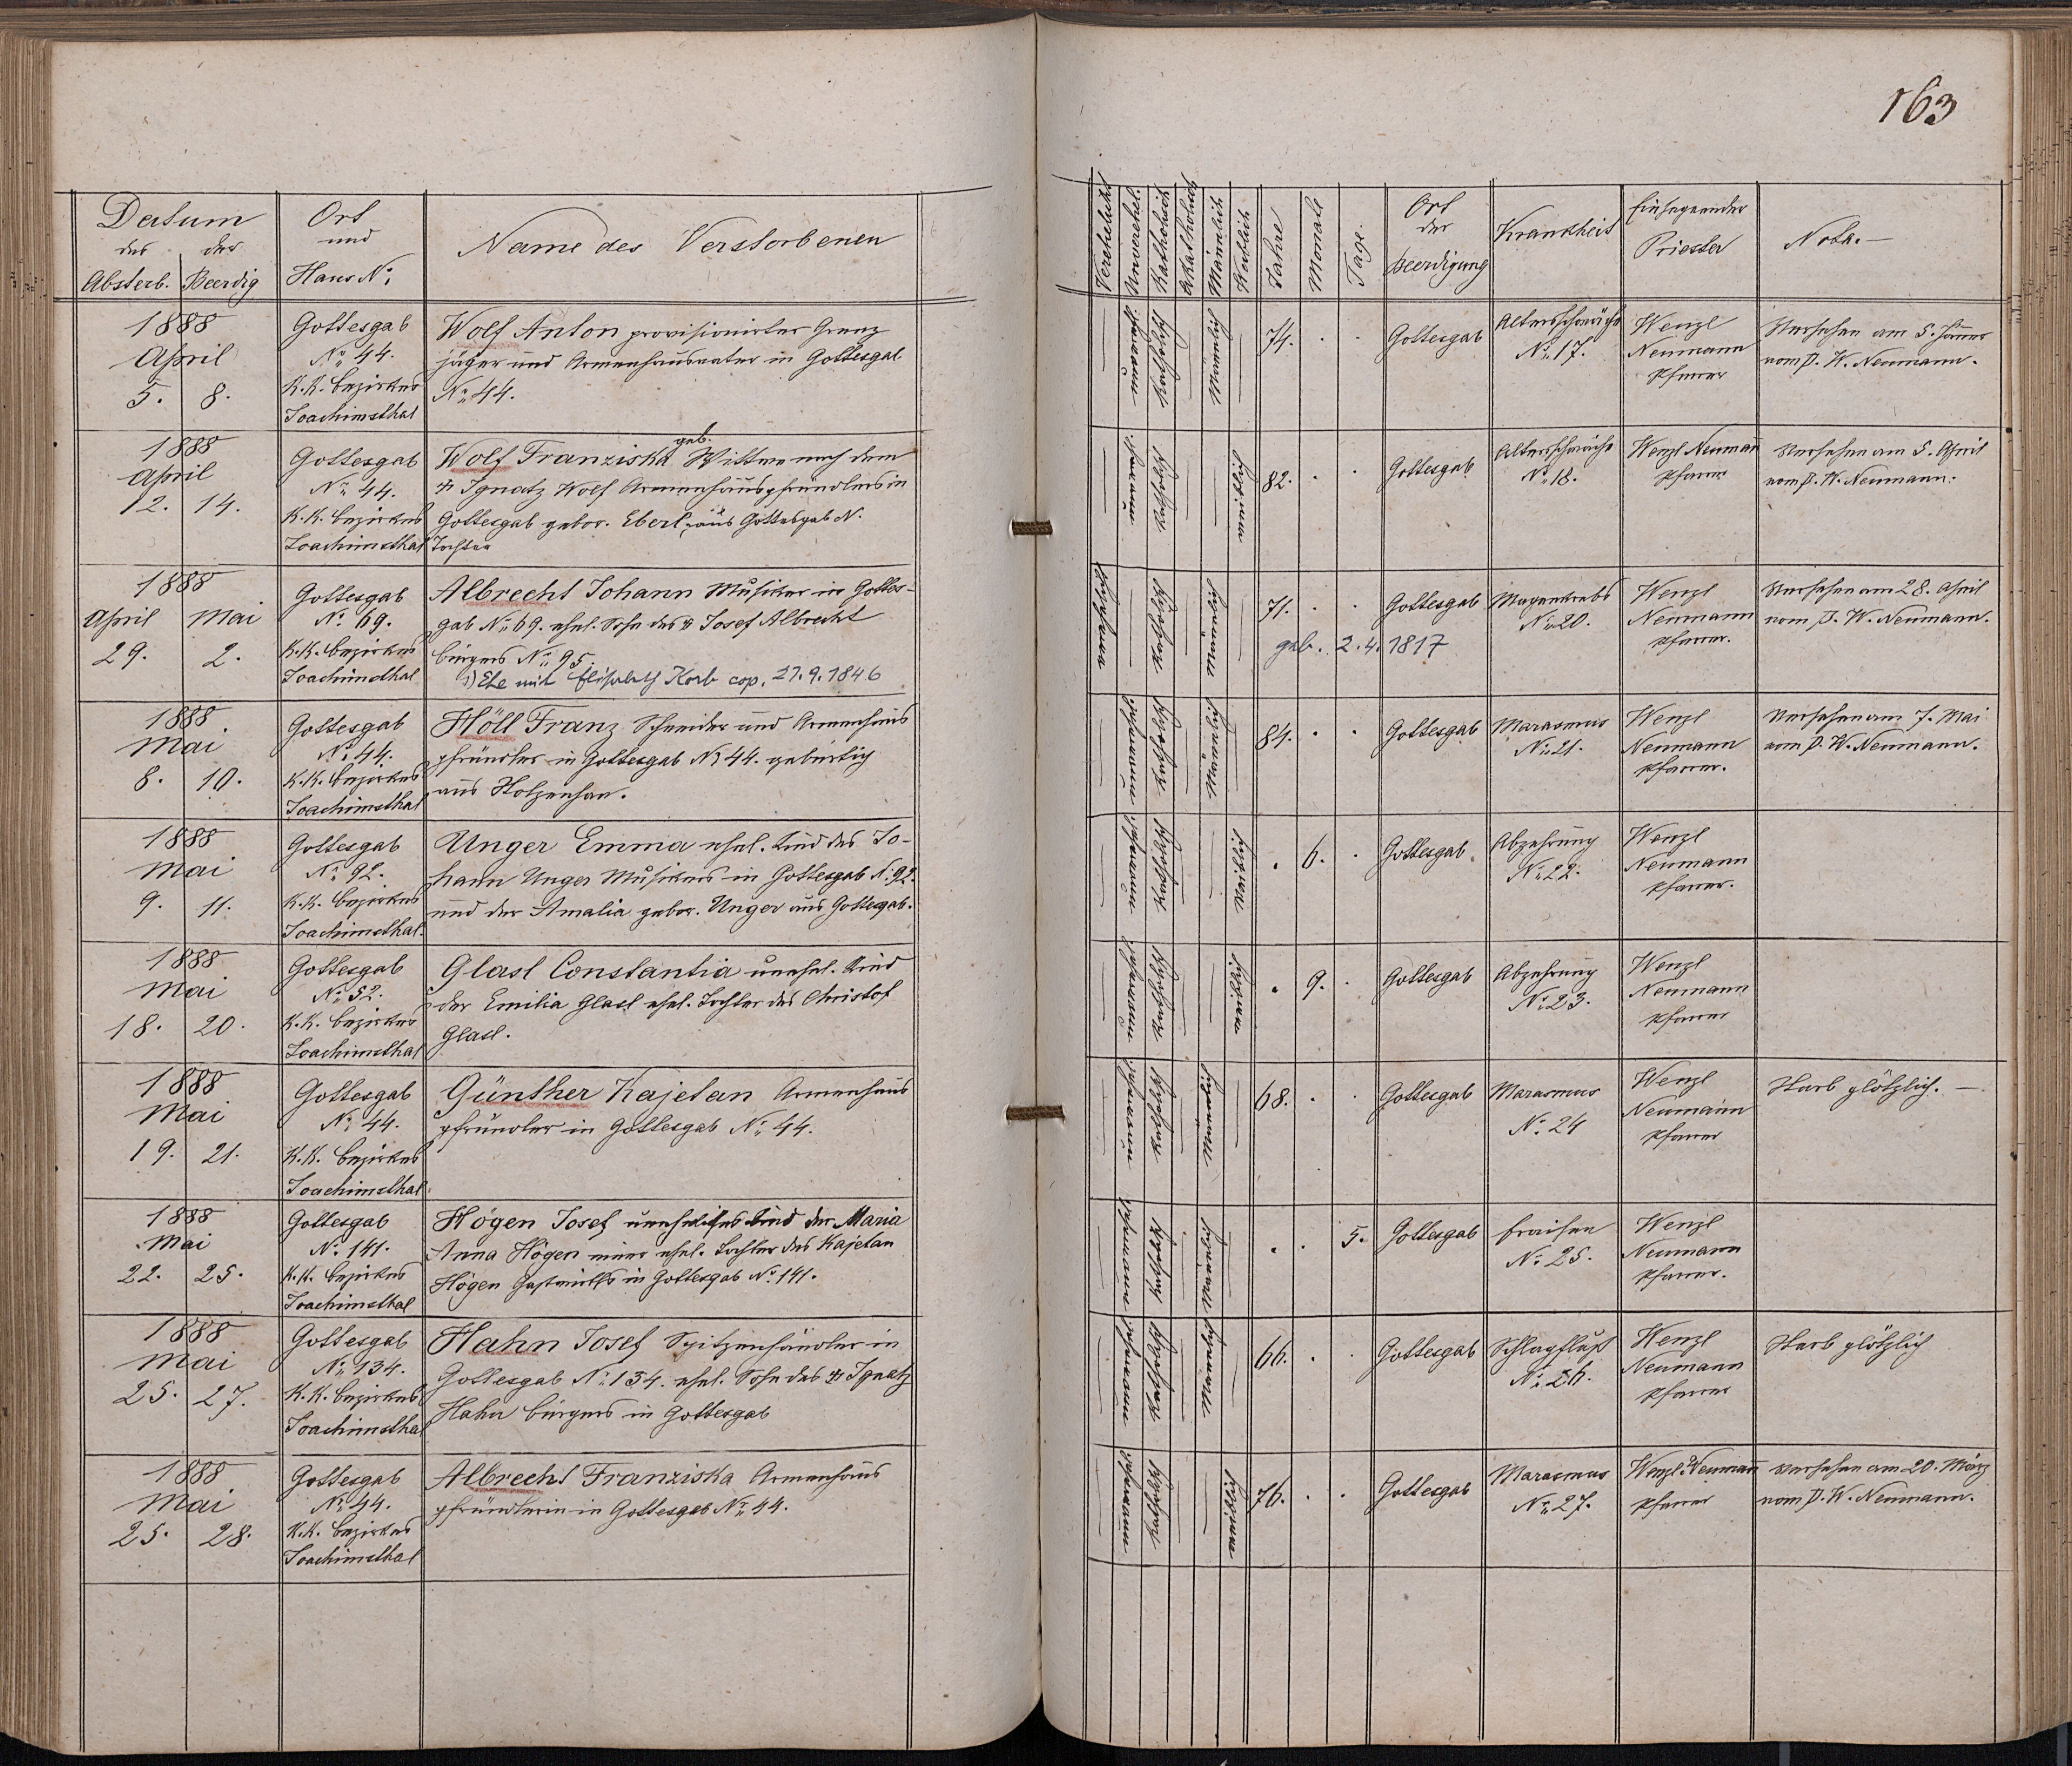 163
Datum
des der
Absterb. Beerdig
Ort
und
Haus N:
Name des Verstorbenen
Verehelicht
Unverehel.
Katholisch
Akatholisch
Männlich
Weiblich
Jahre
Monate
Tage.
Ort
der
Beerdigung
Krankheit
Einsegnender
Priester
Nota.—
1888
April
5. 8.
Gottesgab
No 44.
K.K. Bezirkes
Joachimsthal
Wolf Anton provisionirter Grenz
jäger und Armenhausvater in Gottesgab
No 44.
Katholisch
74. . .
Gottesgab
Altersschwäche
No 17.
Wenzl
Neumann
Pfarrer
Versehen am 5. Jänner
vom P. W. Neumann.
1888
April
12. 14.
Gottesgab
No 44.
K.K. Bezirkes
Joachimsthal
geb.
Wolf Franziska Wittwe nach dem
† Ignatz Wolf Armenhauspfründlers in
Gottesgab gebor. Eberl, aus Gottesgab N.
Tochter
Katholisch
weiblich
82. . .
Gottesgab
Altersschwäche
No 18.
Wenzl Neumann
Pfarrer
Versehen am 5. April
vom P. W. Neumann.
1888
April Mai
29. 2.
Gottesgab
No 69.
K.K. Bezirkes
Joachimsthal
Albrecht Johann Musiker in Gottes-
gab No 69. ehel. Sohn des † Josef Albrecht
Bürgers No 95.
1) Ehe mit Elisabeth Korb cop. 27.9.1846
Katholisch
männlich
71. . .
geb. 2.4.1817
Gottesgab
Magenkrebs
No 20.
Wenzl
Neumann
Pfarrer.
Versehen am 28. April
vom P. W. Neumann.
1888
Mai
8. 10.
Gottesgab
No 44.
K.K. Bezirkes
Joachimsthal
Höll Franz Schneider und Armenhaus
pfründler in Gottesgab No 44. gebürtig
aus Holzenhan.
Katholisch
Männlich
84. . .
Gottesgab
Marasmus
No 21.
Wenzl
Neumann
Pfarrer.
Versehen am 7. Mai
vom P. W. Neumann.
1888
Mai
9. 11.
Gottesgab
No 92.
K.K. Bezirkes
Joachimsthal.
Unger Emma ehel. Kind des Jo-
hann Unger Musikers in Gottesgab N. 92.
und der Amalia gebor. Unger aus Gottesgab.
Katholisch
weiblich
. 6. .
Gottesgab.
Abzehrung
No 22.
Wenzl
Neumann
Pfarrer.
1888
Mai
18. 20.
Gottesgab
No 52.
K.K. Bezirkes
Joachimsthal
Glasl Constantia unehel. Kind
der Emilia Glasl ehel. Tochter des Christof
Glasl.
Katholisch
weiblich
. 9. .
Gottesgab
Abzehrung
No 23.
Wenzl
Neumann
Pfarrer
1888
Mai
19. 21.
Gottesgab
No 44.
K.K. Bezirkes
Joachimsthal.
Günther Kajetan Armenhaus
pfründler in Gottesgab No 44.
Katholisch
männlich
68. . .
Gottesgab
Marasmus
No. 24
Wenzl
Neumann
Pfarrer
Starb plötzlich. —
1888
Mai
22. 25.
Gottesgab
No. 141.
K.K. Bezirkes
Joachimsthal
Högen Josef uneheliches Kind der Maria
Anna Högen einer ehel. Tochter des Kajetan
Högen Gastwirths in Gottesgab No. 141.
Katholisch
männlich
. . 5.
Gottesgab
Fraisen
No. 25.
Wenzl
Neumann
Pfarrer.
1888
Mai
25. 27.
Gottesgab
No 134.
K.K. Bezirkes
Joachimsthal
Hahn Josef Spitzenhändler in
Gottesgab No 134. ehel. Sohn des † Ignatz
Hahn Bürgers in Gottesgab
Katholisch
männlich
66. . .
Gottesgab
Schlagfluß
No. 26.
Wenzl
Neumann
Pfarrer
Starb plötzlich
1888
Mai
25. 28.
Gottesgab
No 44.
K.K. Bezirkes
Joachimsthal
Albrecht Franziska Armenhaus
pfründlerin in Gottesgab No 44.
Katholisch
weiblich
76. . .
Gottesgab
Marasmus
No 27.
Wenzl Neumann
Pfarrer
Versehen am 20. März
vom P. W. Neumann.